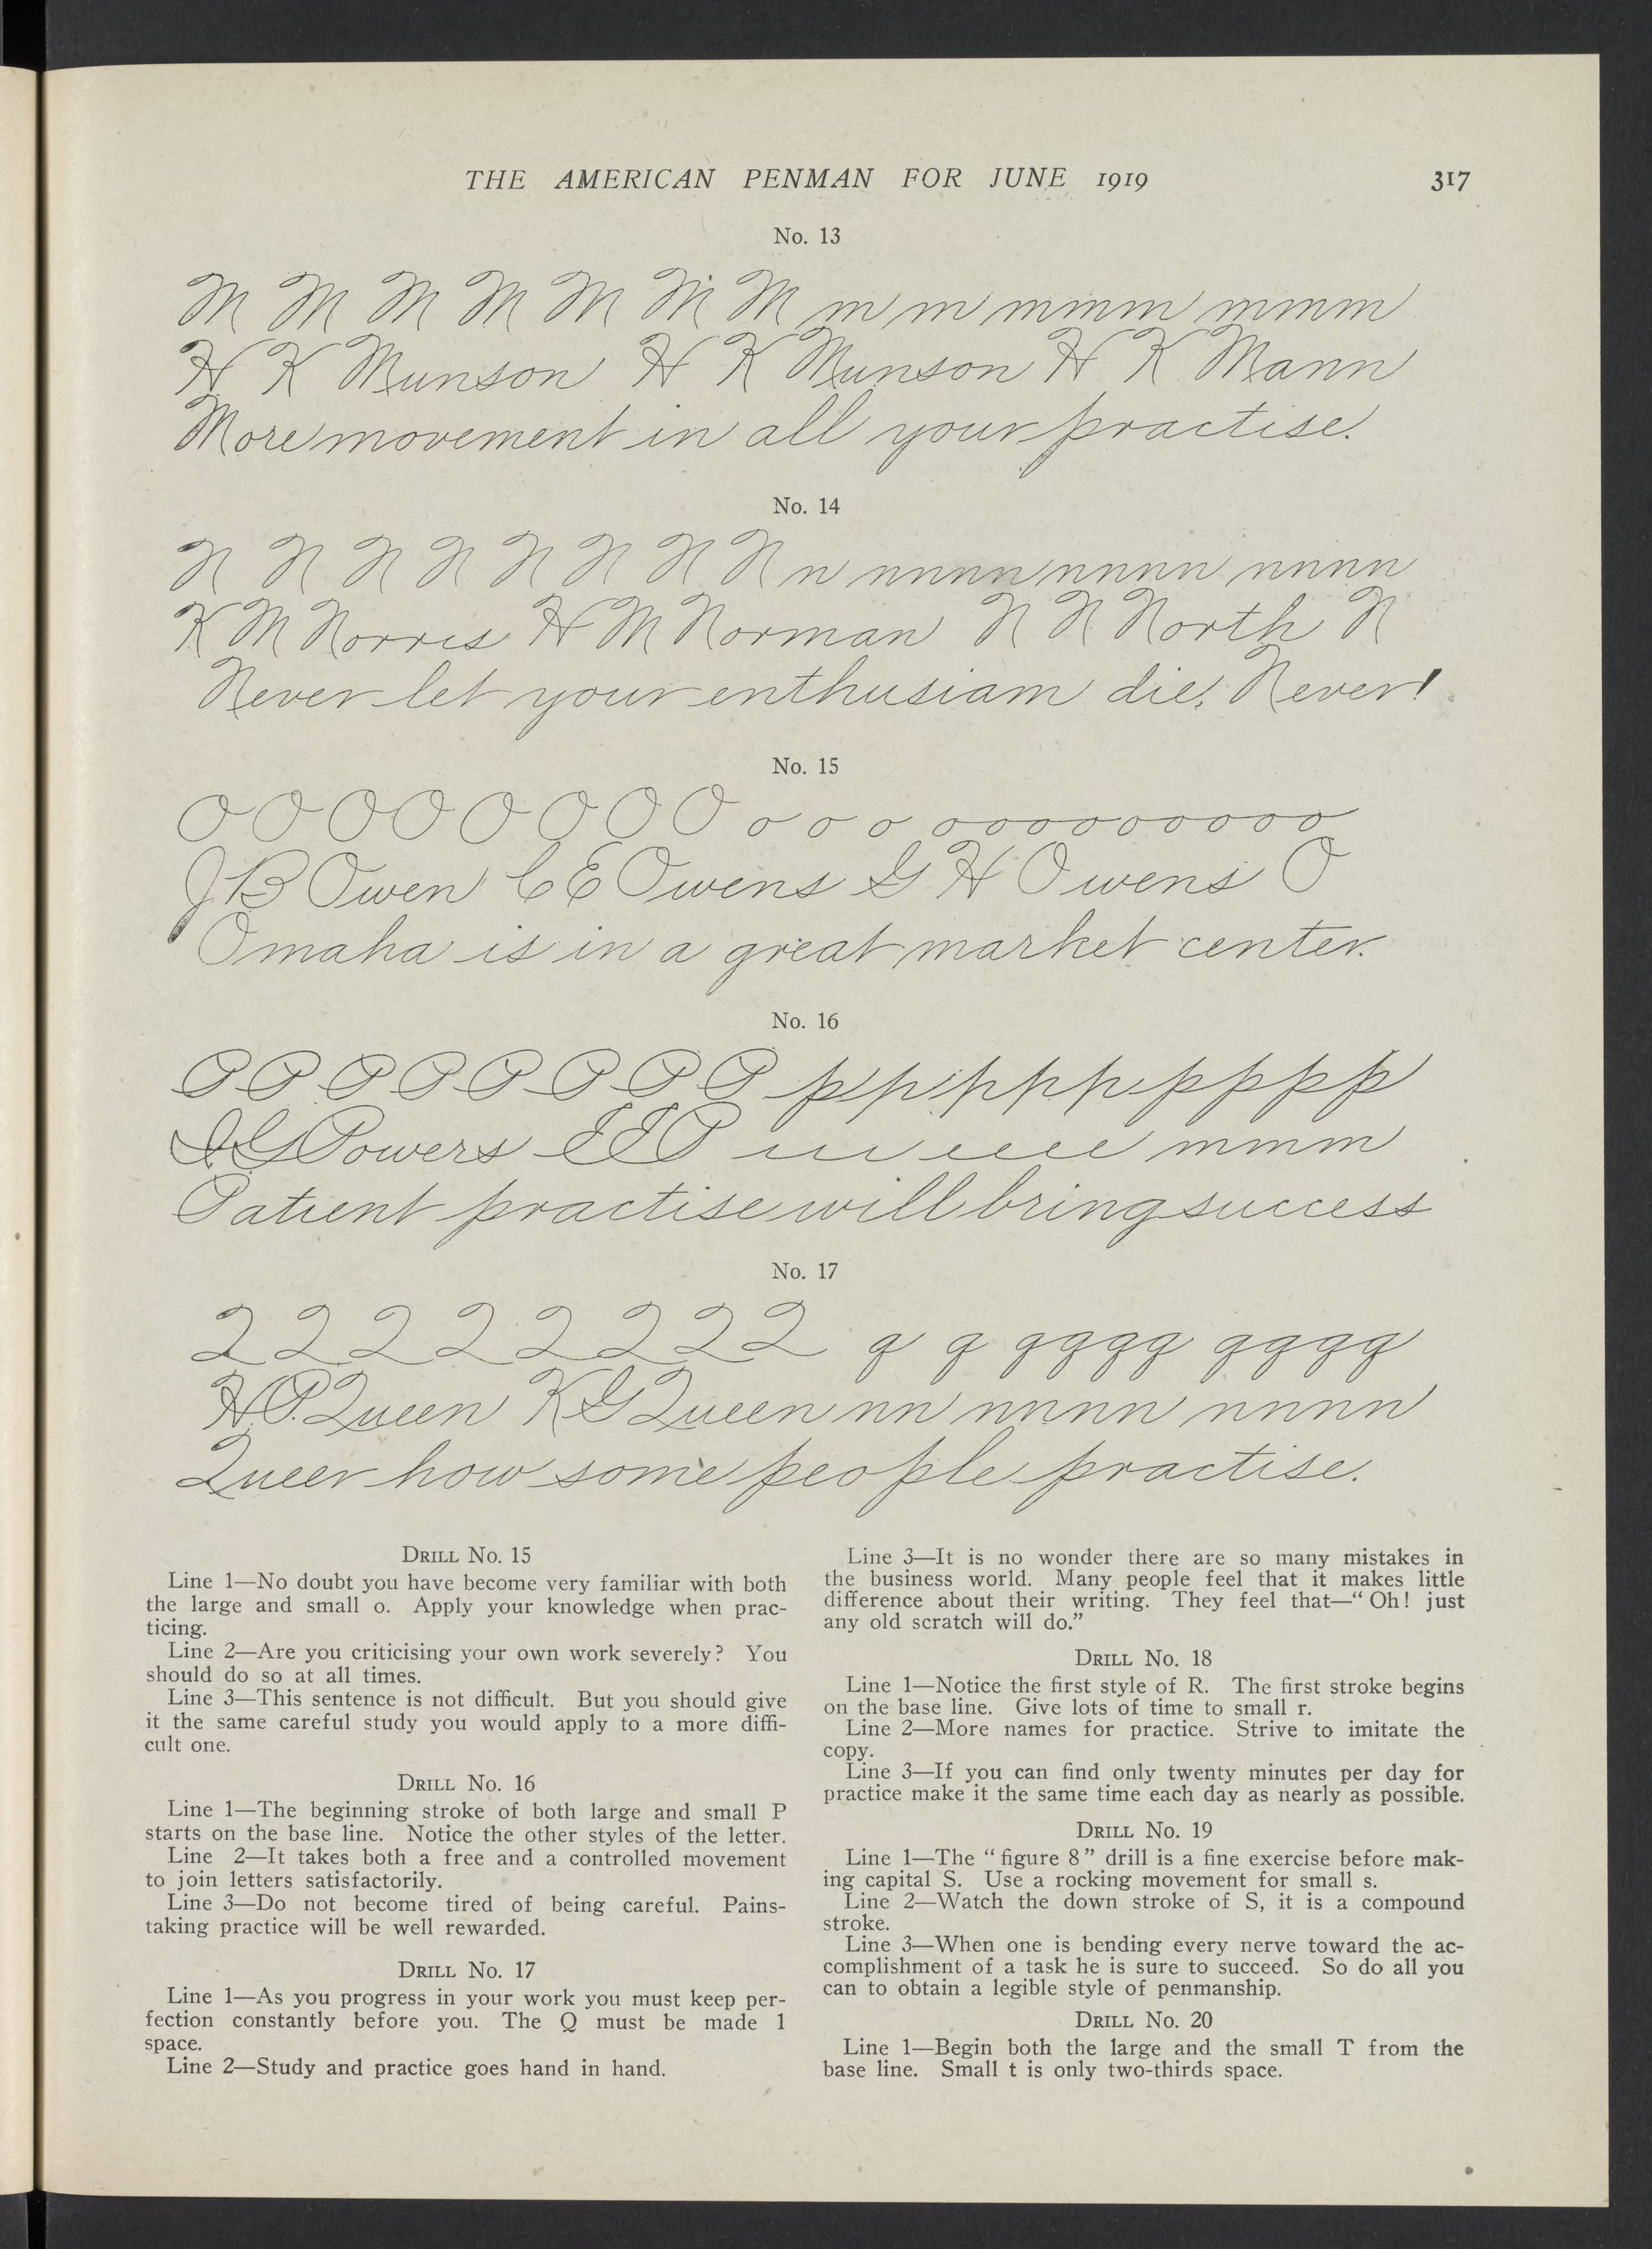 THE AMERICAN PENMAN FOR JUNE 1919 317
No. 13
M M M M M M M m m mmm mmm
H K Munson H K Munson H K Mann
More movement in all your practise.
No. 14
N N N N N N N N n nnnn nnnn nnnn
K M Norris H M Norman N N North N
Never let your enthusiam die, Never!
No. 15
O O O O O O O O o o o oooooooooo
J B Owen C E Owens G H Owens O
Omaha is in a great market center.
No. 16
P P P P P P P P p p p p p p p p p p
I G Powers I I P mmm
Patient practise will bring success
No. 17
Q Q Q Q Q Q Q Q q q qqqq qqqq
H. P. Queen K G Queen nn nnnn nnnn
Queer how some people practise.
DRILL No. 15
Line 1—No doubt you have become very familiar with both
the large and small o. Apply your knowledge when prac-
ticing.
Line 2—Are you criticising your own work severely? You
should do so at all times.
Line 3—This sentence is not difficult. But you should give
it the same careful study you would apply to a more diffi-
cult one.
DRILL No. 16
Line 1—The beginning stroke of both large and small P
starts on the base line. Notice the other styles of the letter.
Line 2—It takes both a free and a controlled movement
to join letters satisfactorily.
Line 3—Do not become tired of being careful. Pains-
taking practice will be well rewarded.
DRILL No. 17
Line 1—As you progress in your work you must keep per-
fection constantly before you. The Q must be made 1
space.
Line 2—Study and practice goes hand in hand.
Line 3—It is no wonder there are so many mistakes in
the business world. Many people feel that it makes little
difference about their writing. They feel that—“Oh! just
any old scratch will do.”
DRILL No. 18
Line 1—Notice the first style of R. The first stroke begins
on the base line. Give lots of time to small r.
Line 2—More names for practice. Strive to imitate the
copy.
Line 3—If you can find only twenty minutes per day for
practice make it the same time each day as nearly as possible.
DRILL No. 19
Line 1—The “figure 8” drill is a fine exercise before mak-
ing capital S. Use a rocking movement for small s.
Line 2—Watch the down stroke of S, it is a compound
stroke.
Line 3—When one is bending every nerve toward the ac-
complishment of a task he is sure to succeed. So do all you
can to obtain a legible style of penmanship.
DRILL No. 20
Line 1—Begin both the large and the small T from the
base line. Small t is only two-thirds space.